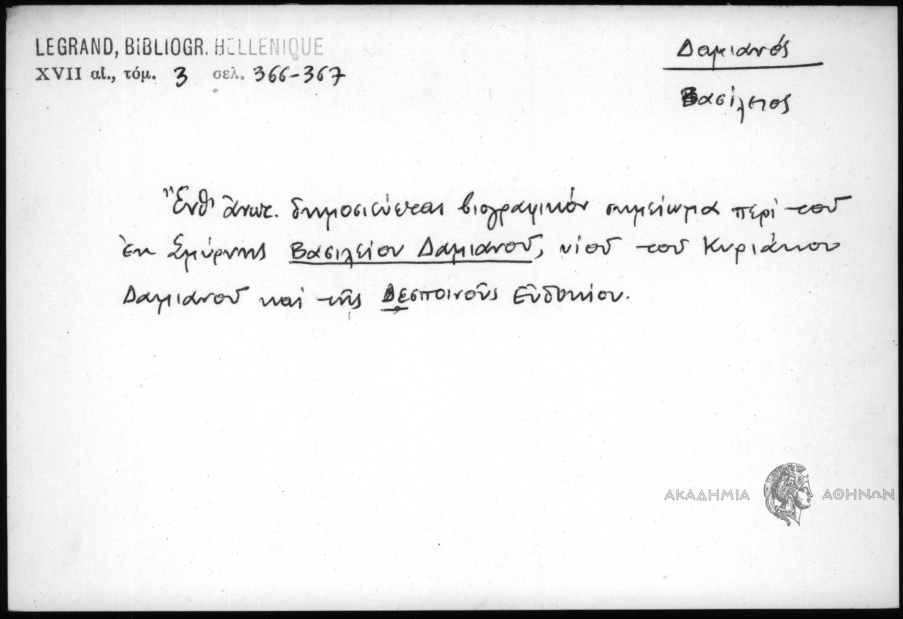 LEGRAND, BIBLIOGR. HELLENIQUE
XVII αἰ., τόμ. 3 σελ. 366-367
Δαμιανός
Βασίλειος
Ἔνθ' ἄνωτ. δημοσιεύεται βιογραφικόν σημείωμα περί τοῦ
ἐκ Σμύρνης Βασιλείου Δαμιανοῦ, υἱοῦ τοῦ Κυριάκου
Δαμιανοῦ καί τῆς Δεσποινοῦς Εὐδοκίου.
ΑΚΑΔΗΜΙΑ ΑΘΗΝΩΝ